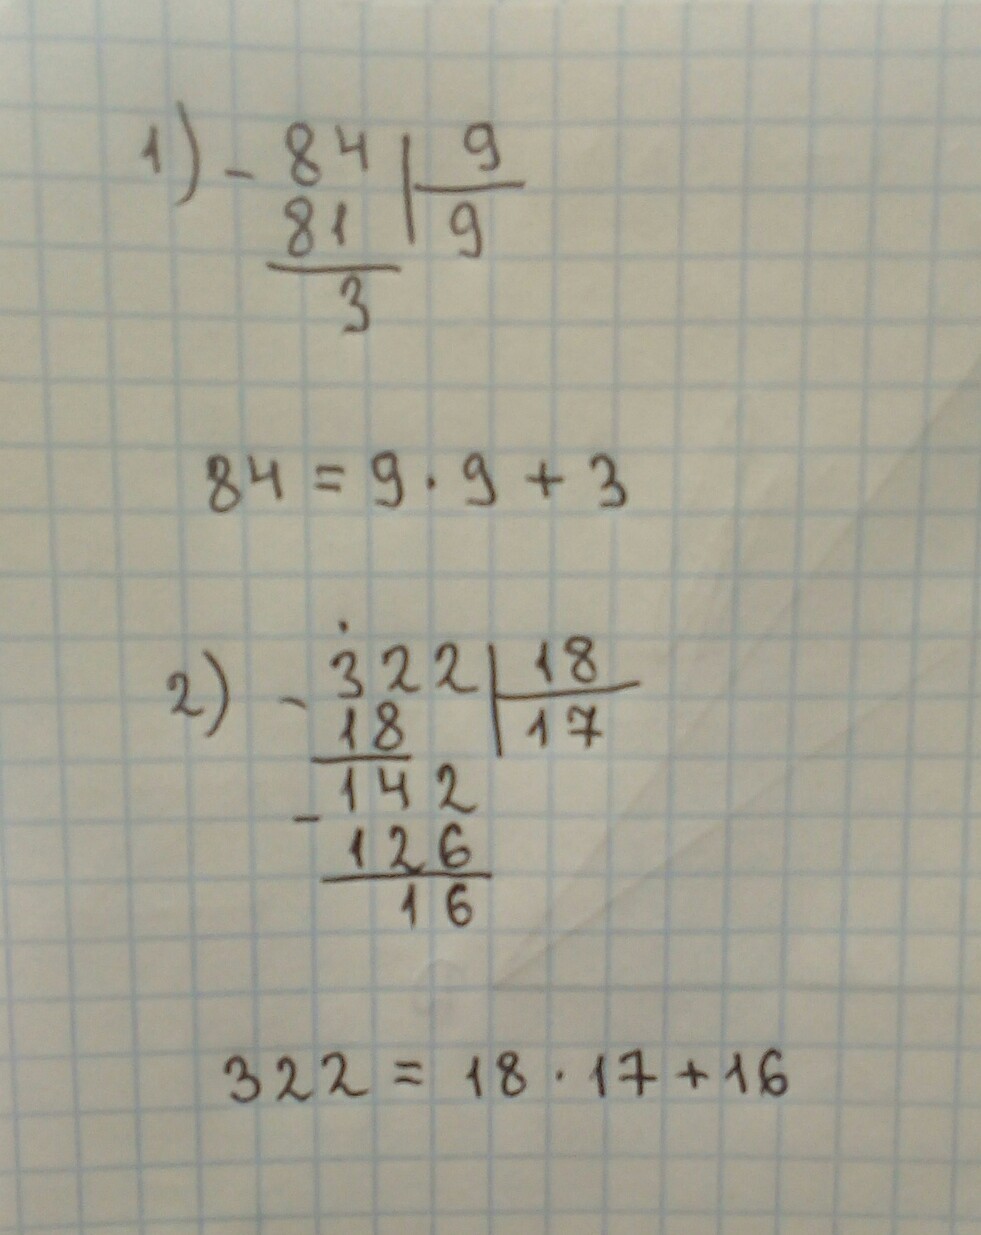 1) - 84 | 9
81 | 9
3
84 = 9 · 9 + 3
2) - 322 | 18
18 | 17
- 142
126
16
322 = 18 · 17 + 16